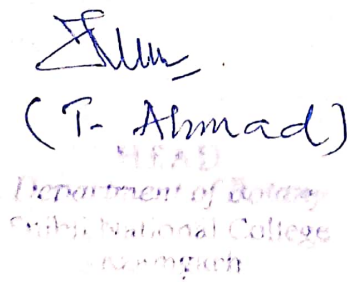 (T. Ahmad)
HEAD
Department of Botany
Shibli National College
Azamgarh